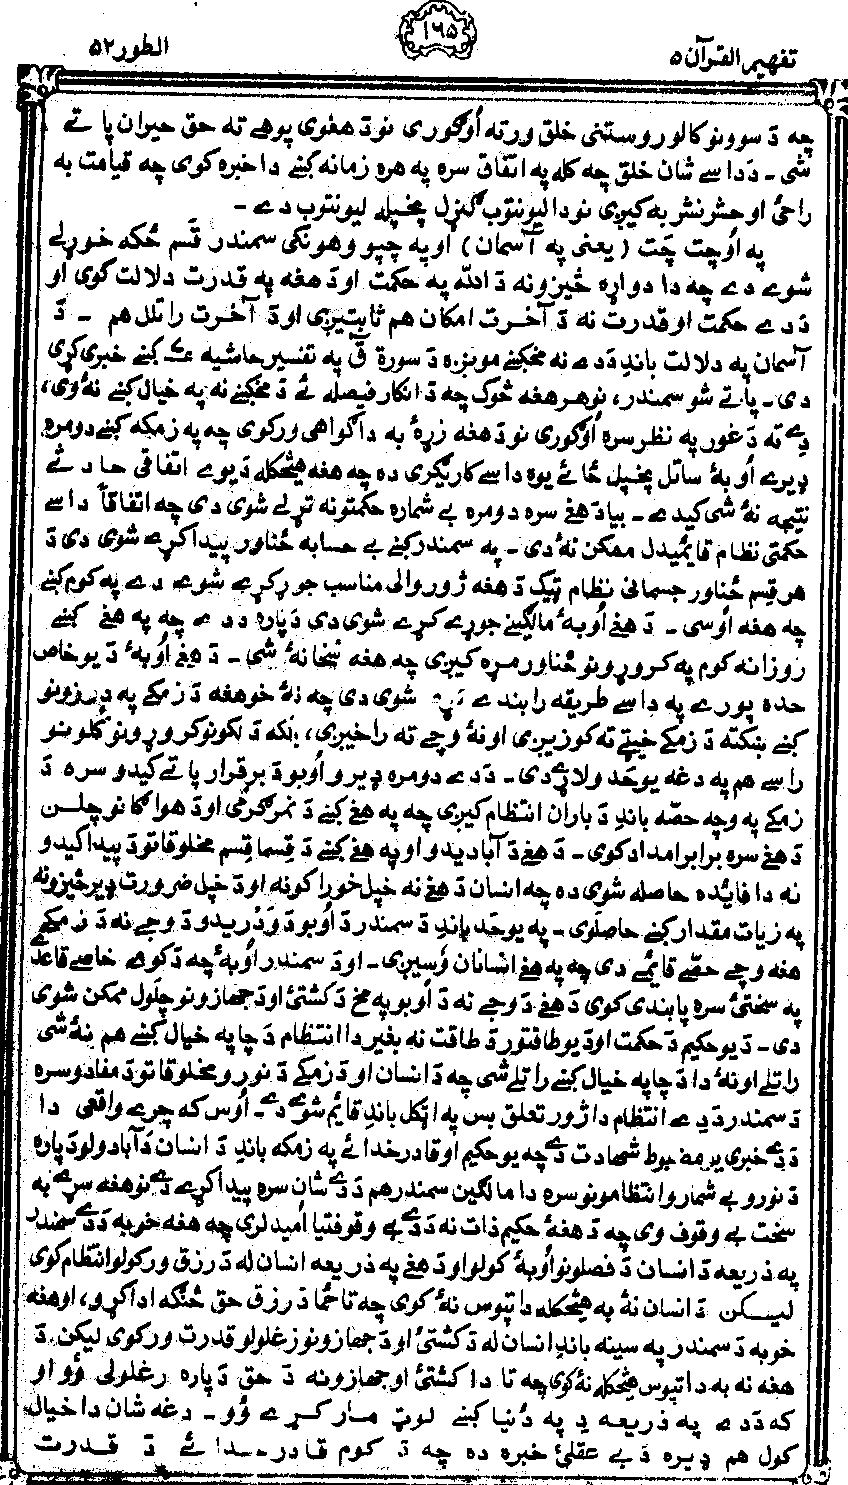 تفهيم القرآن ۵
۱۶۵
الطور ۵۲
چه دَ سوونو کالو روستنی خلق ورته اُوګوری نو دَ هغوی پوهے ته حق حیران پاتے
شی ۔ دَ دا سے شان خلق چه کله په اتفاق سره په هره زمانه کښے دا خبره کوی چه قیامت به
راځی او حشر نشر به کیږی نو دا لیونتوب ګنړل پخپله لیونتوب دے ۔
په اُوچت چَت ( یعنی په آسمان ) او په چپو وهونکی سمندر قسم ځکه خوړلے
شوے دے چه دا دواړه څیزونه دَ الله په حکمت او دَ هغه په قدرت دلالت کوی او
دَ دے حکمت او قدرت نه دَ آخرت امکان هم ثابتیږی او دَ آخرت راتلل هم ۔ دَ
آسمان په دلالت باندِ دَ دے نه مخکښے مونږه دَ سورة قٓ په تفسیر حاشیه کښے خبری کړی
دی ۔ پاتے شو سمندر، نو هر هغه څوک چه دَ انکار فیصله ئے دَ مخکښے نه په خیال کښے نۀ وی،
دِے ته دَ غور په نظر سره اُوګوری نو دَ هغه زړۀ به دا ګواهی ورکوی چه په زمکه کښے دومره
ډیرے اُوبۀ ساتل پخپل ځائے یوه دا سے کاریګری ده چه هغه هیڅکله دَ یوے اتفاقی حادثے
نتیجه نۀ شی کیدے ۔ بیا دَ هغے سره دومره بے شماره حکمتونه تړلے شوی دی چه اتفاقاً دا سے
حکمتی نظام قایمیدل ممکن نۀ دی ۔ په سمندر کښے بے حسابه ځناور پیدا کړے شوی دی دَ
هر قِسم ځناور جسمانی نظام ټیک دَ هغه ژوروالی مناسب جوړ کړے شوے دے په کوم کښے
چه هغه اُوسی ۔ دَ هغے اُوبۀ مالګینے جوړے کړے شوی دی دَ پاره دَ دے چه په هغے کښے
روزانه کوم په کروړونو ځناور مړه کیږی چه هغه سخا نۀ شی ۔ دَ هغے اُوبۀ دَ یو خاص
حده پورے په دا سے طریقه را بندے شوی دی چه نۀ خو هغه دَ زمکے په درزونو
کښے ښکته دَ زمکے خیټے ته کوزیږی او نۀ وچے ته راخیږی، بلکه دَ لکونو کروړونو کلونو
را سے هم په دغه یو حد ولاړے دی ۔ دَ دے دومره ډیرو اُوبو دَ برقرار پاتے کیدو سره دَ
زمکے په وچه حصّه باندِ دَ باران انتظام کیږی چه په هغے کښے دَ نمر ګرمی او دَ هواګانو چلن
دَ هغے سره برابر امداد کوی ۔ دَ هغے دَ آبادیدو او په هغے کښے دَ قسما قسم مخلوقاتو دَ پیدا کیدو
نه دا فائده حاصله شوی ده چه انسان دَ هغے نه خپل خوراکونه او دَ خپل ضرورت ډیر څیزونه
په زیات مقدار کښے حاصلوی ۔ په یو حد باندِ دَ سمندر دَ اُوبو دَ ودریدو دَ وجے نه دَ زمکے
هغه وچے حصّے قائمے دی چه په هغے انسانان وسیږی ۔ او دَ سمندر اُوبۀ چه دَ کومے خاصے قاعدے
په سختۍ سره پابندی کوی دَ هغے دَ وجے نه دَ اُوبو په مخ دَ کشتۍ او دَ جهازونو چلول ممکن شوی
دی ۔ دَ یو حکیم دَ حکمت او دَ یو طاقتور دَ طاقت نه بغیر دا انتظام دَ چا په خیال کښے هم نۀ شی
راتلے او نۀ دا دَ چا په خیال کښے راتلے شی چه دَ انسان او دَ زمکے دَ نورو مخلوقاتو دَ مفادو سره
دَ سمندر دَ دِے انتظام دا ژور تعلق بس په اټکل باندِ قایم شوے دے ۔ اُوس که چرے واقعی دا
دَ دے خبرے پر مضبوط شهادت دے چه یو حکیم او قادر خدائے په زمکه باندِ دَ انسان دَ آبادولو دَ پاره
دَ نورو بے شمارو انتظامونو سره دا مالګین سمندر هم دَ دے شان سره پیدا کړے دے نو هغه سړے به
سخت بے وقوف وی چه دَ هغۀ حکیم ذات نه دَ دے بے وقوفتیا اُمید لری چه هغه خو به دَ دے سمندر
په ذریعه دَ انسان دَ فصلونو اُوبۀ کولو او دَ هغے په ذریعه انسان له دَ رزق ورکولو انتظام کوی
لیکن دَ انسان نۀ به هیڅکله دا تپوس نۀ کوی چه تا ځما دَ رزق حق څنګه ادا کړو، او هغه
خو به دَ سمندر په سینه باندِ انسان له دَ کشتۍ او دَ جهازونو زغلولو قدرت ورکوی لیکن. دَ
هغه نه به دا تپوس هیڅکله نۀ کوی چه تا دا کشتۍ او جهازونه دَ حق دَ پاره زغلولی وُو او
که دَ دے په ذریعه دِ په دُنیا کښے لوټ مار کړے وُو ۔ دغه شان دا خیال
کول هم ډیره دَ بے عقلئ خبره ده چه دَ کوم قادر خدائے دَ قدرت